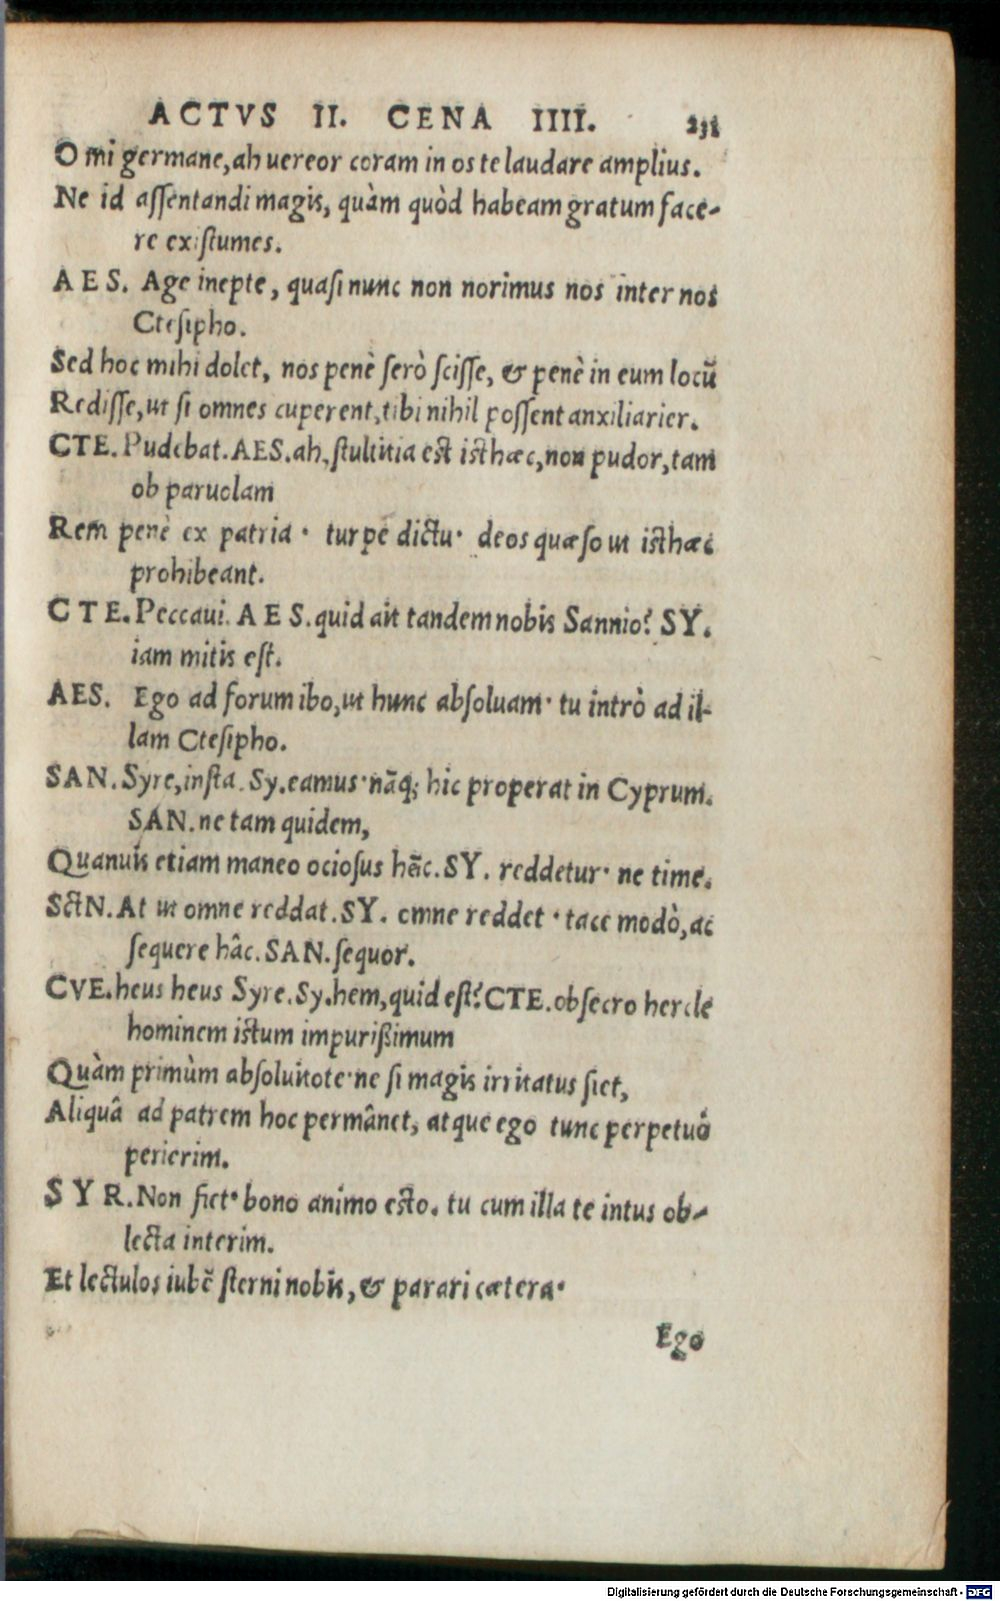 ACTVS II. CENA IIII. 231
O mi germane, ah uereor coram in os te laudare amplius.
Ne id assentandi magis, quàm quòd habeam gratum face-
re existumes.
AES. Age inepte, quasi nunc non norimus nos inter nos
Ctesipho.
Sed hoc mihi dolet, nos penè serò scisse, & penè in eum locũ
Redisse, ut si omnes cuperent, tibi nihil possent anxiliarier.
CTE. Pudebat. AES. ah, stultitia est isthæc, non pudor, tam
ob paruolam
Rem penè ex patria · turpe dictu · deos quæso ut isthæc
prohibeant.
CTE. Peccaui. AES. quid ait tandem nobis Sannio? SY.
iam mitis est.
AES. Ego ad forum ibo, ut hunc absoluam · tu intrò ad il-
lam Ctesipho.
SAN. Syre, insta. Sy. eamus · nãq; hic properat in Cyprum.
SAN. ne tam quidem,
Quanuis etiam maneo ociosus hîc. SY. reddetur · ne time.
SctN. At ut omne reddat. SY. omne reddet · tace modò, ac
sequere hâc. SAN. sequor.
CVE. heus heus Syre. Sy. hem, quid est? CTE. obsecro hercle
hominem istum impurißimum
Quàm primùm absoluitote · ne si magis irritatus siet,
Aliquâ ad patrem hoc permânet, atque ego tunc perpetuò
perierim.
SYR. Non fiet · bono animo esto. tu cum illa te intus ob-
lecta interim.
Et lectulos iubẽ sterni nobis, & parari cætera ·
Ego
Digitalisierung gefördert durch die Deutsche Forschungsgemeinschaft - DFG